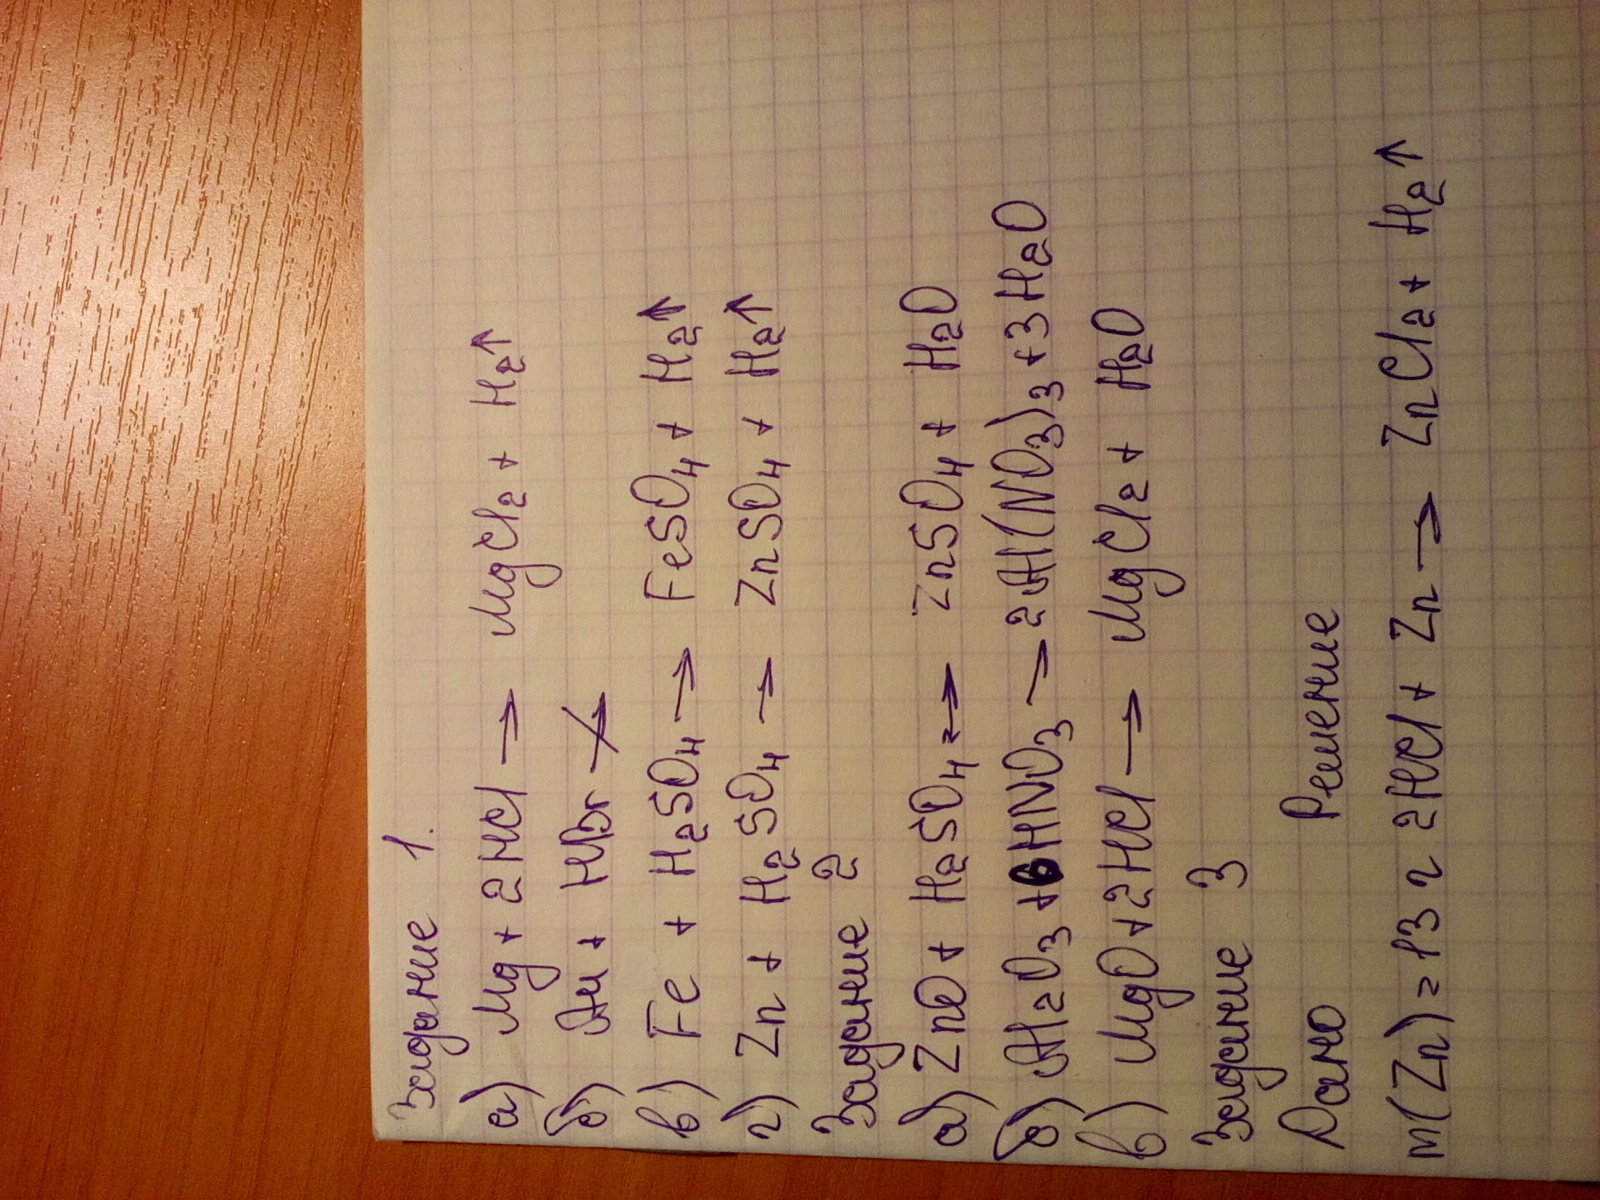 Задание 1.
а) Mg + 2HCl → MgCl₂ + H₂↑
б) Au + HBr ↛
в) Fe + H₂SO₄ → FeSO₄ + H₂↑
г) Zn + H₂SO₄ → ZnSO₄ + H₂↑
Задание 2
а) ZnO + H₂SO₄ ↔ ZnSO₄ + H₂O
б) Al₂O₃ + 6HNO₃ → 2Al(NO₃)₃ + 3H₂O
в) MgO + 2HCl → MgCl₂ + H₂O
Задание 3
Дано Решение
m(Zn) = 13 г 2HCl + Zn → ZnCl₂ + H₂↑